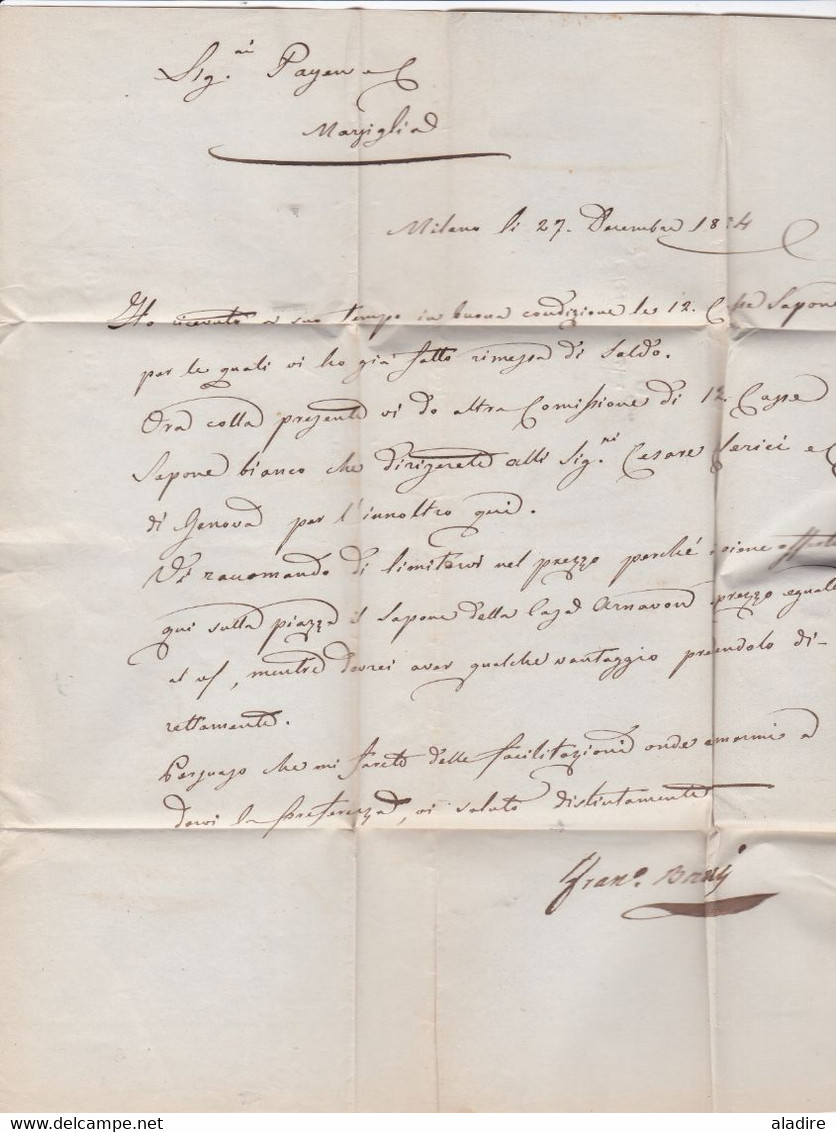 Sig.ri Payen e C
Marsiglia
Milano li 27. Decembre 1834
Ho ricevuto a suo tempo in buona condizione le 12. Csse Sapone
per le quali vi ho già fatto rimessa di saldo.
Ora colla presente vi do altra Comissione di 12. Casse
Sapone bianco che dirigerete alli Sig.ri Cesare e C
di Genova per l'innoltro qui.
Vi racomando di limitarvi nel prezzo perché viene offerto
qui sulla piazza il Sapone della Casa Arnavon prezzo eguale
al vs, mentre dovrei aver qualche vantaggio prendendolo di-
rettamente.
Persuaso che mi farete delle facilitazioni onde animarmi a
darvi la preferenza, vi saluto distintamente
Fran.o
aladire